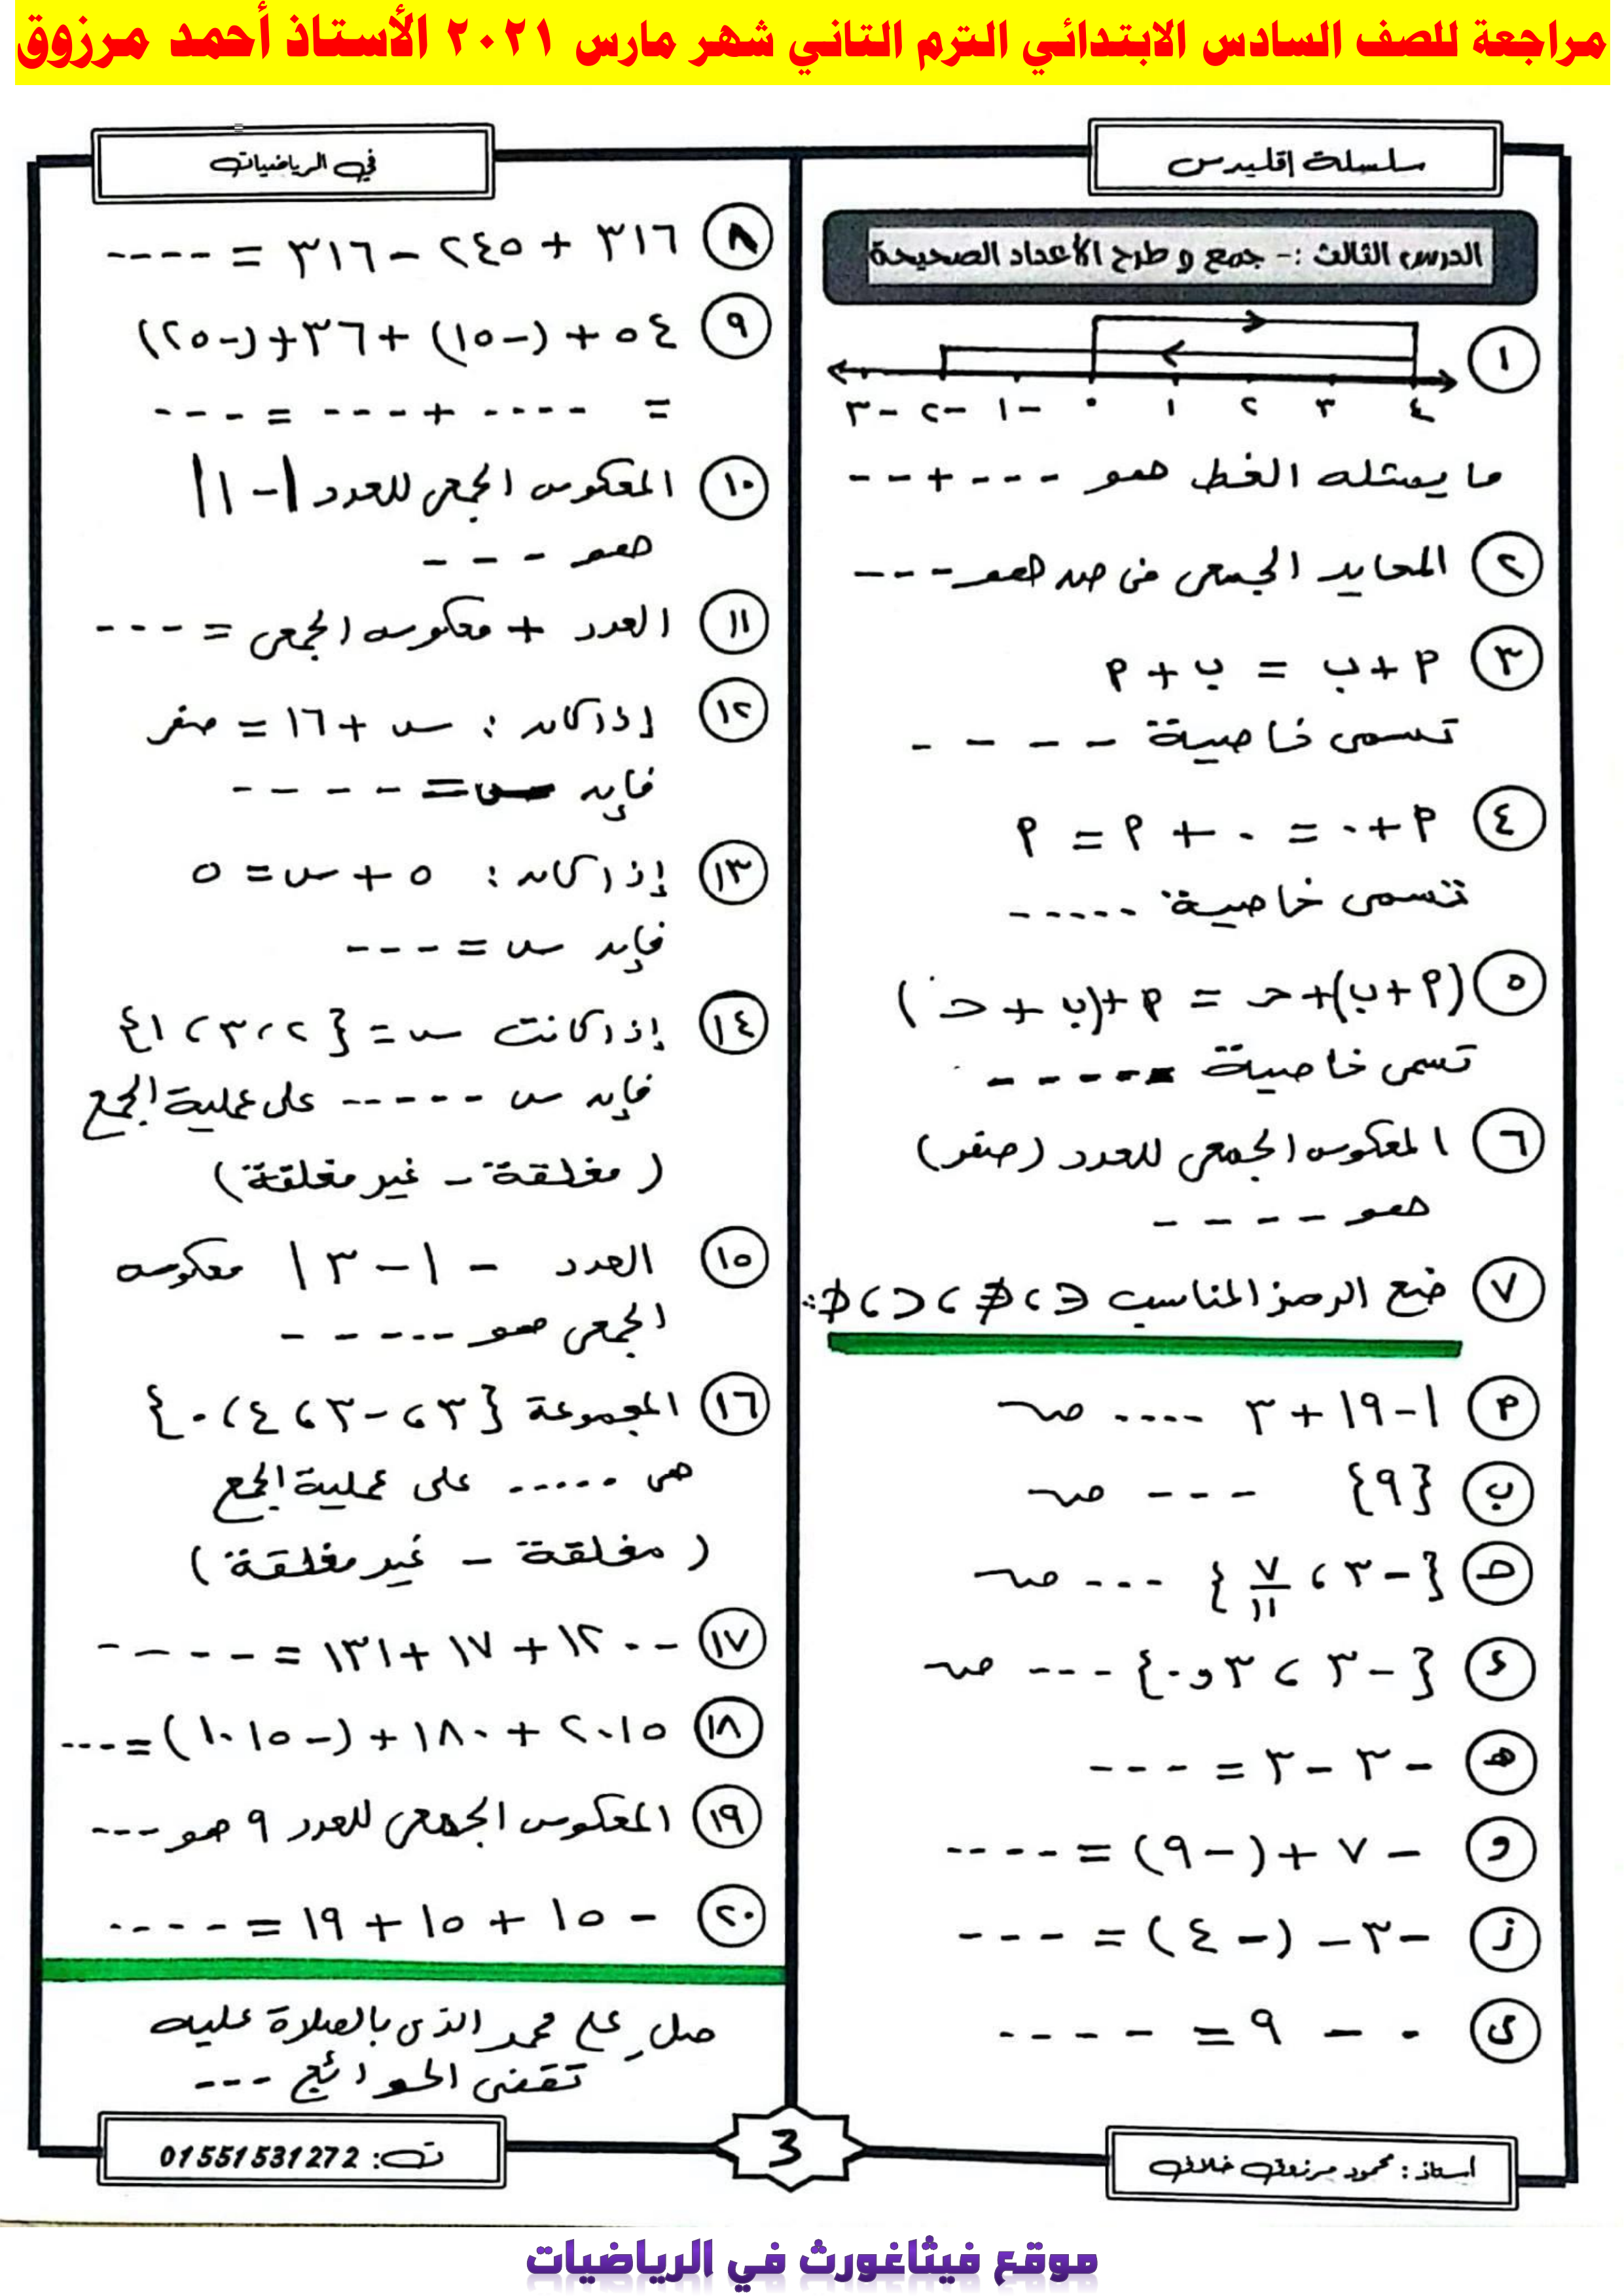 مراجعة للصف السادس الابتدائي الترم الثاني شهر مارس ٢٠٢١ الأستاذ أحمد مرزوق
سلسلة إقليدس
في الرياضيات
الدرس الثالث :- جمع و طرح الأعداد الصحيحة
١
-٣ -٢ -١ ٠ ١ ٢ ٣ ٤
ما يمثله الخط هو --- + ---
٢ المحايد الجمعى فى صـ هو ---
٣ ٩ + ب = ب + ٩
تسمى خاصية ----
٤ ٩ + ٠ = ٠ + ٩ = ٩
تسمى خاصية -----
٥ (٩ + ب) + حـ = ٩ + (ب + حـ)
تسمى خاصية -----
٦ المعكوس الجمعى للعدد (صفر)
هو ----
٧ ضع الرمز المناسب ∈ ، ∉ ، ⊂ ، ⊄ :
٩ |-١٩ + ٣ ---- صـ
ب {٩} --- صـ
حـ {-٣ ، ٧/١١} --- صـ
ء {-٣ ، ٣ و ٠} --- صـ
هـ -٣ - ٣ = ---
و -٧ + (-٩) = ----
ز -٣ - (-٤) = ---
ى ٠ - ٩ = ----
٨ ٣١٦ + ٢٤٥ - ٣١٦ = ----
٩ ٥٤ + (-١٥) + ٣٦ + (-٢٥)
= ---- + --- = ---
١٠ المعكوس الجمعى للعدد |-١|
هو ---
١١ العدد + معكوسه الجمعى = ---
١٢ إذا كان : س + ١٦ = صفر
فإن س = ----
١٣ إذا كان : ٥ + س = ٥
فإن س = ---
١٤ إذا كانت س = {٢ ، ٣ ، ١}
فإن س ----- على عملية الجمع
(مغلقة - غير مغلقة)
١٥ العدد -|-٣| معكوسه
الجمعى هو -----
١٦ المجموعة {٣ ، -٣ ، ٤ ، ٠}
هى ----- على عملية الجمع
(مغلقة - غير مغلقة)
١٧ -١٢٠٠ + ١٧ + ١٣١ = ----
١٨ ٢٠١٥ + ١٨٠ + (-١٠١٥) = ---
١٩ المعكوس الجمعى للعدد ٩ هو ---
٢٠ -١٥ + ١٥ + ١٩ = ----
صلِ على محمد الذى بالصلاة عليه
تقضى الحوائج ---
أستاذ : محمود مرزوق خلاف
3
ت: 01551531272
موقع فيثاغورث في الرياضيات